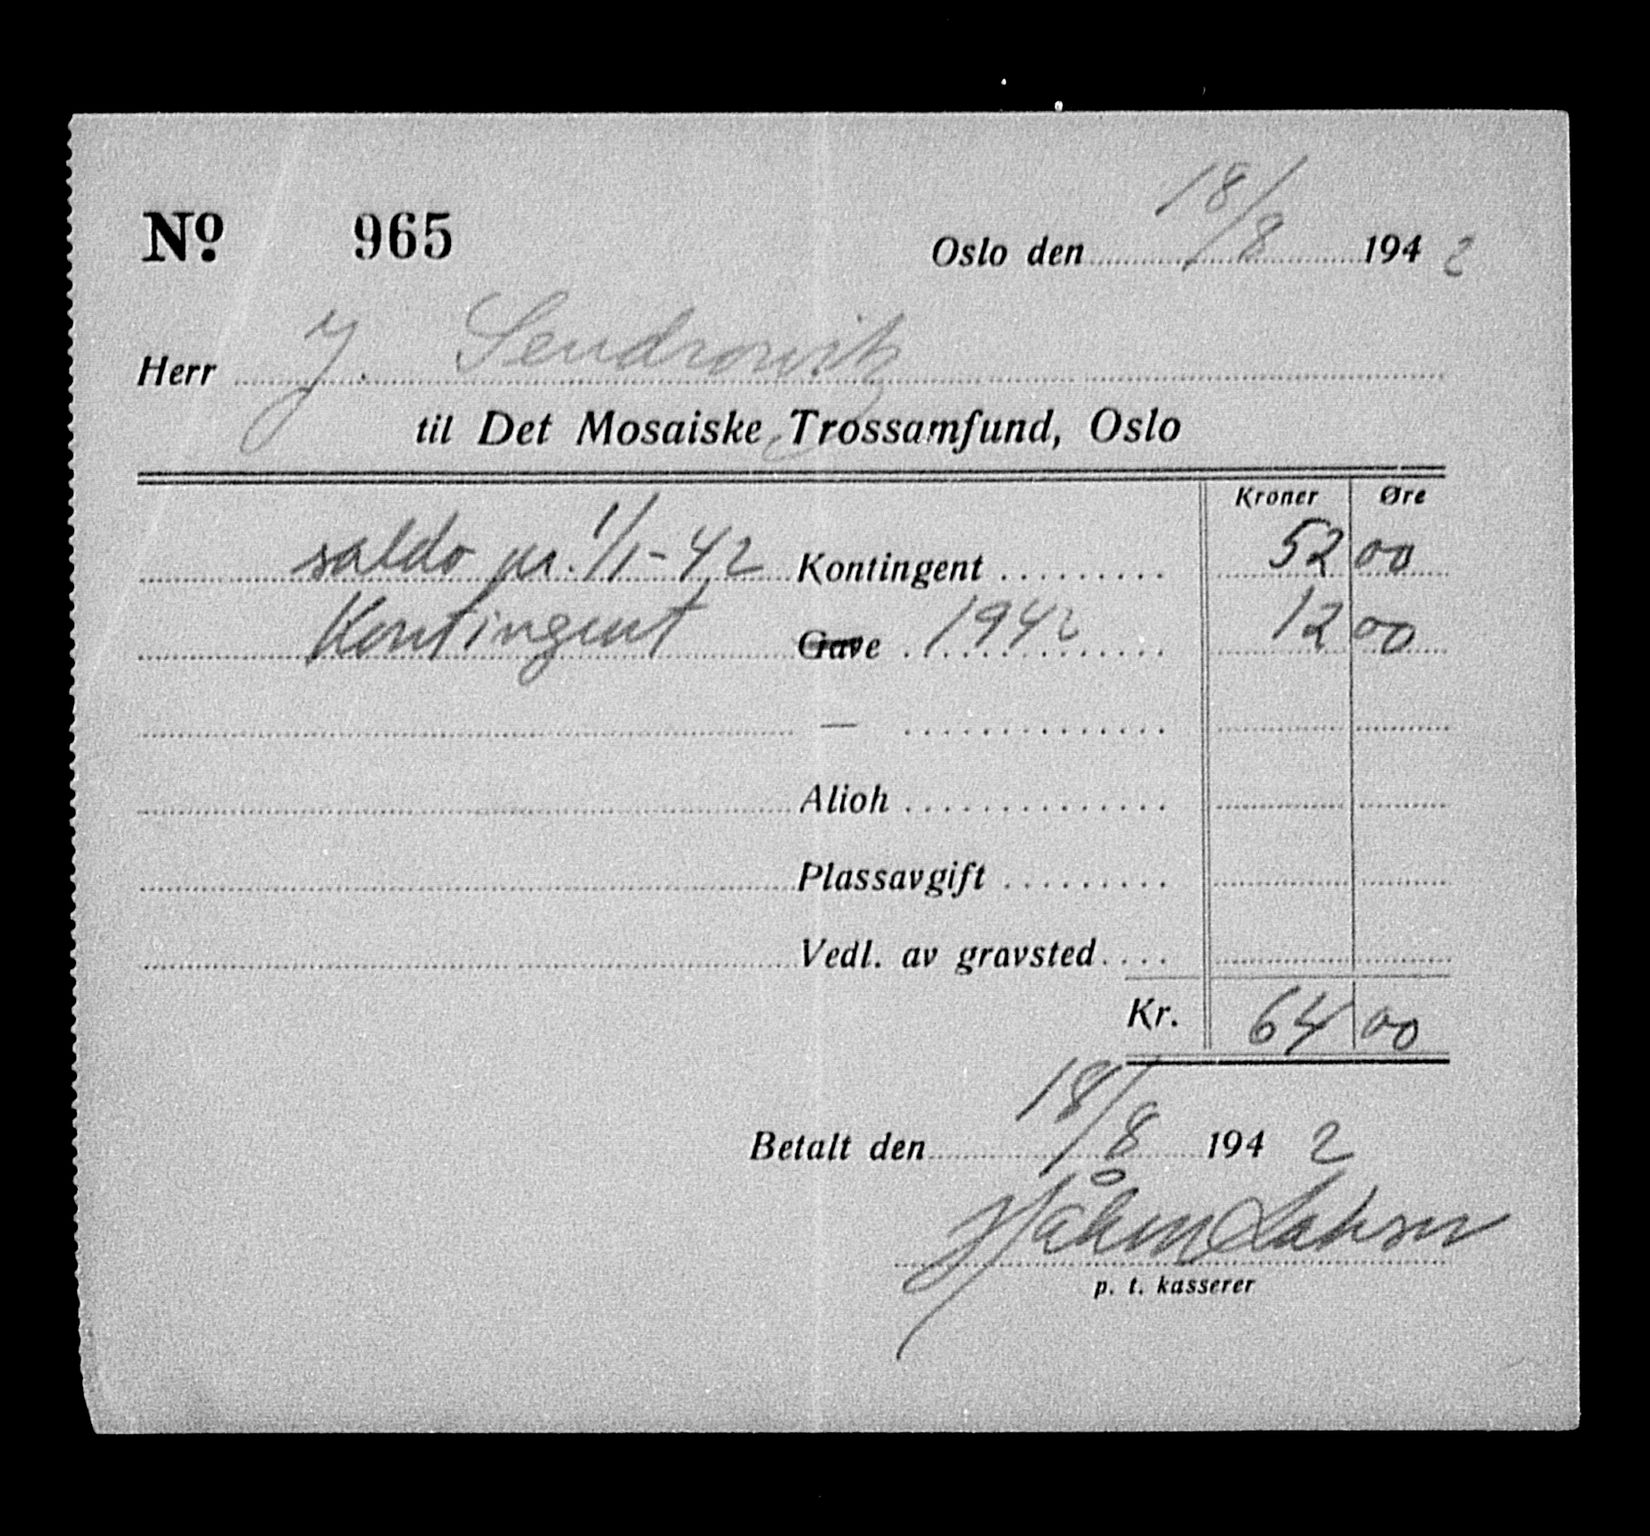 Nº 965
Oslo den 18/8 1942
Herr J. Sendrowitz
til Det Mosaiske Trossamfund, Oslo
Kroner Øre
saldo pr. 1/1-42 Kontingent ......... 52 00
Kontingent Gave . 1942 12 00
—
Alioh
Plassavgift
Vedl. av gravsted
Kr. 64 00
Betalt den 18/8 1942
Håkon Laksov
p. t. kasserer